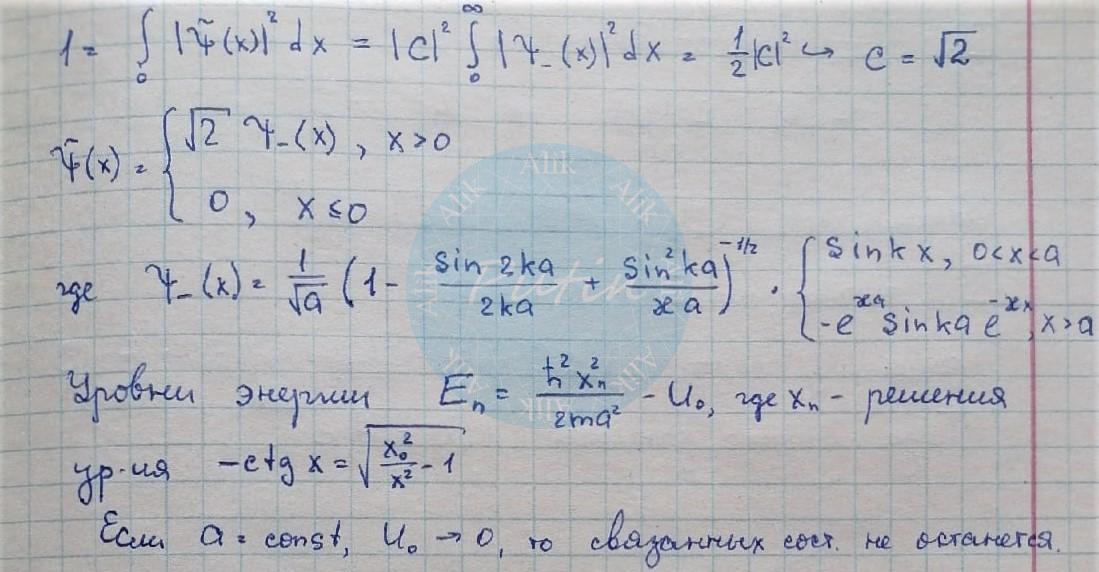 1 = ∫₀ |ψ̃(x)|² dx = |C|² ∫₀^∞ |ψ₋(x)|² dx = 1/2 |C|² ↪ C = √2
ψ̃(x) = { √2 ψ₋(x), x > 0
0, x ≤ 0
где ψ₋(x) = 1/√a (1 - sin 2ka / 2ka + sin² ka / æa)^(-1/2) · { sin kx, 0<x<a
-e^(æa) sin ka e^(-æx), x>a
Уровни энергии Eₙ = ħ² xₙ² / 2ma² - U₀, где xₙ - решения
ур-ия -ctg x = √(x₀²/x² - 1)
Если a = const, U₀ → 0, то связанных сост. не останется.
Alik
Alik
Alik
Alik
Alik
Alik